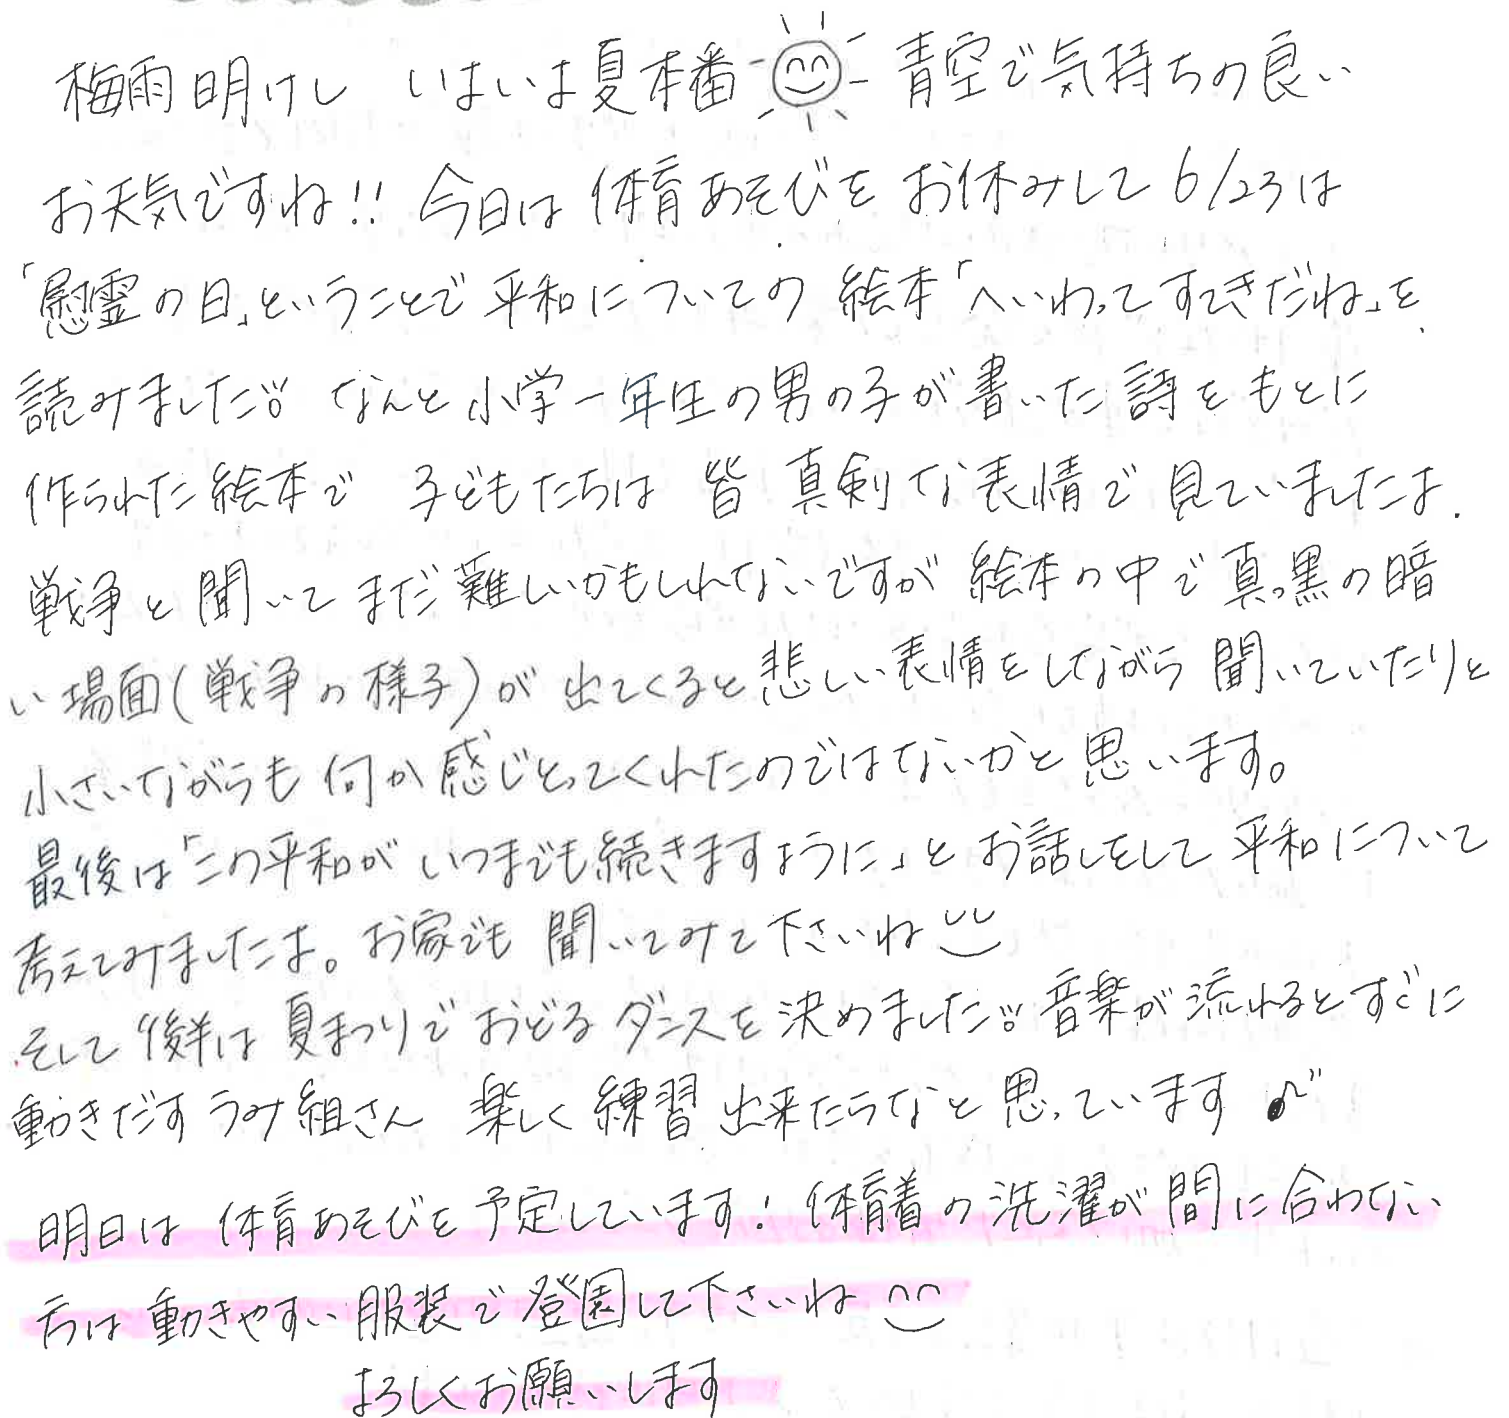 梅雨明けし いよいよ夏本番 青空で気持ちの良い
お天気ですね!! 今日は体育あそびをお休みして6/23は
「慰霊の日」ということで平和についての絵本「へいわってすてきだね」を
読みました。なんと小学一年生の男の子が書いた詩をもとに
作られた絵本で 子どもたちは 皆 真剣な表情で見ていましたよ.
戦争と聞いてまだ難しいかもしれないですが絵本の中で真っ黒の暗
い場面(戦争の様子)が出てくると悲しい表情をしながら聞いていたりと
小さいながらも何か感じとってくれたのではないかと思います。
最後は「この平和がいつまでも続きますように」とお話しをして平和について
考えてみましたよ。お家でも聞いてみて下さいね
そして後半は夏まつりでおどるダンスを決めました。音楽が流れるとすぐに
動きだすうみ組さん 楽しく練習出来たらなと思っています♪
明日は体育あそびを予定しています! 体育着の洗濯が間に合わない
方は動きやすい服装で登園して下さいね
よろしくお願いします